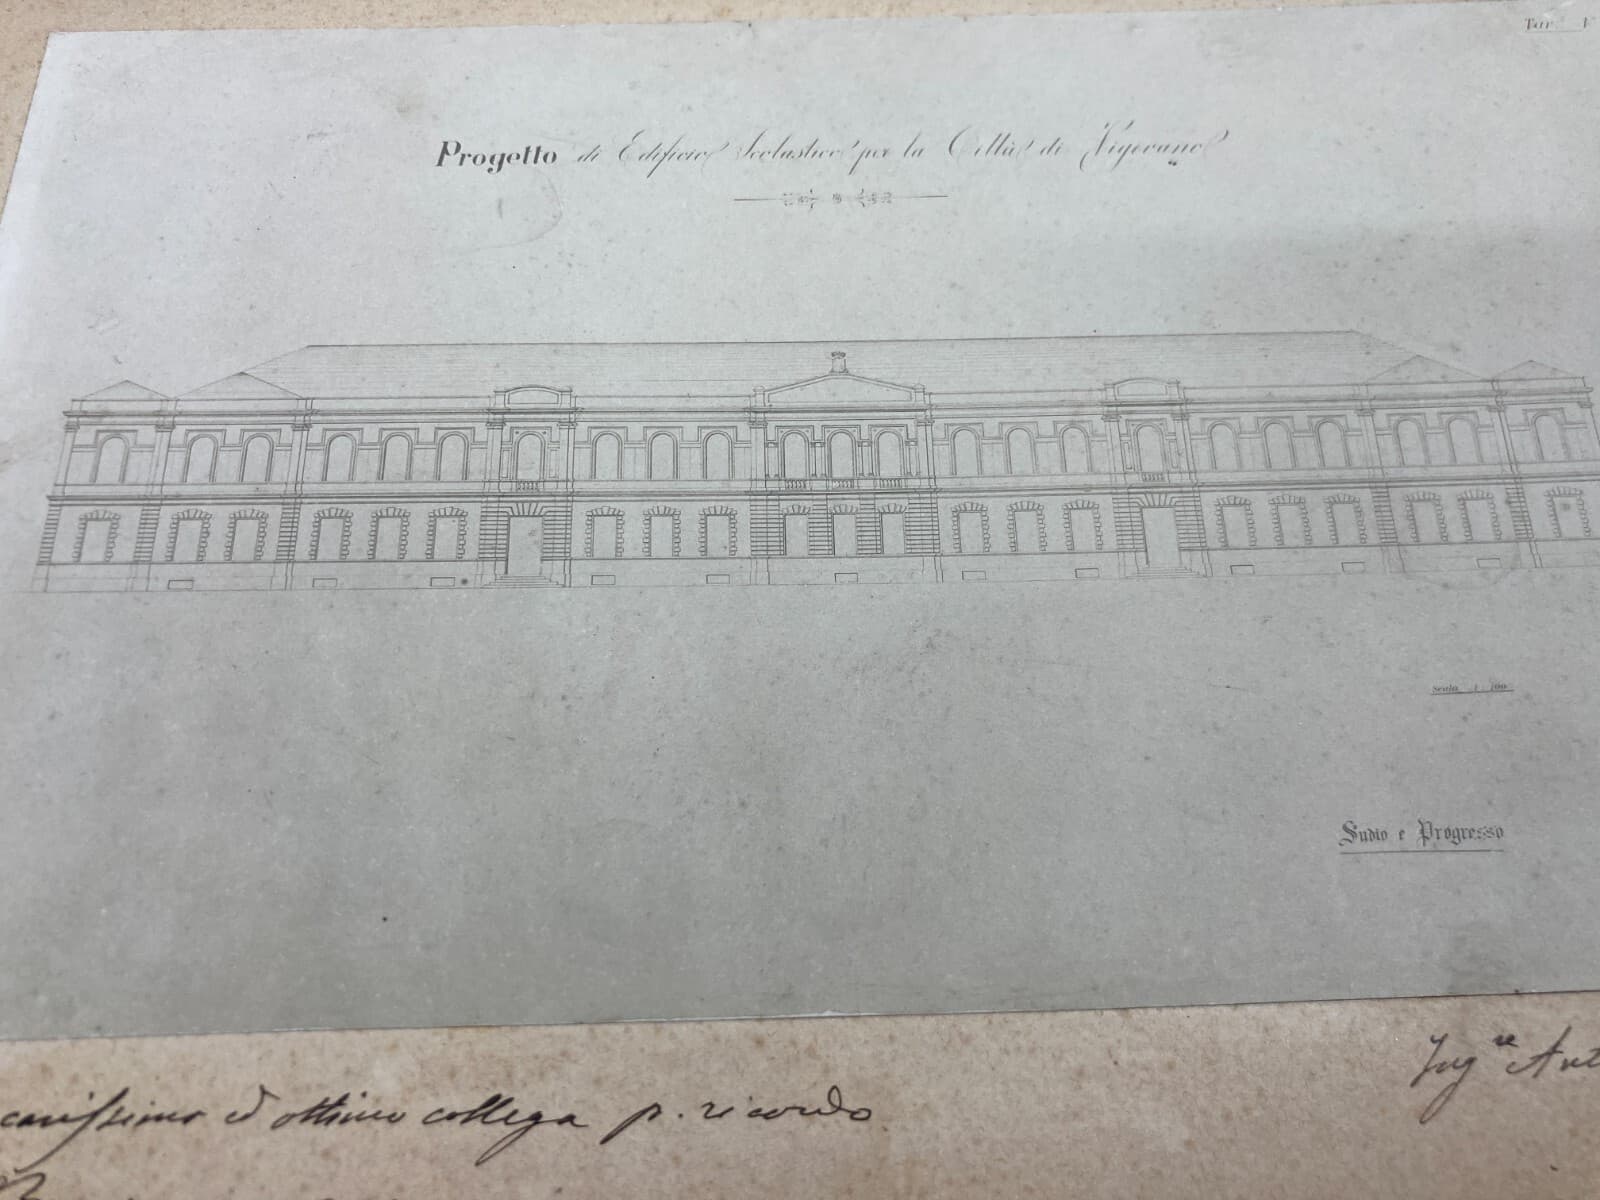 Tav. V
Progetto di Edificio Scolastico per la Città di Vigevano
Scala 1:100
Sudio e Progresso
Ing.re Ant
carissimo ed ottimo collega p. ricordo